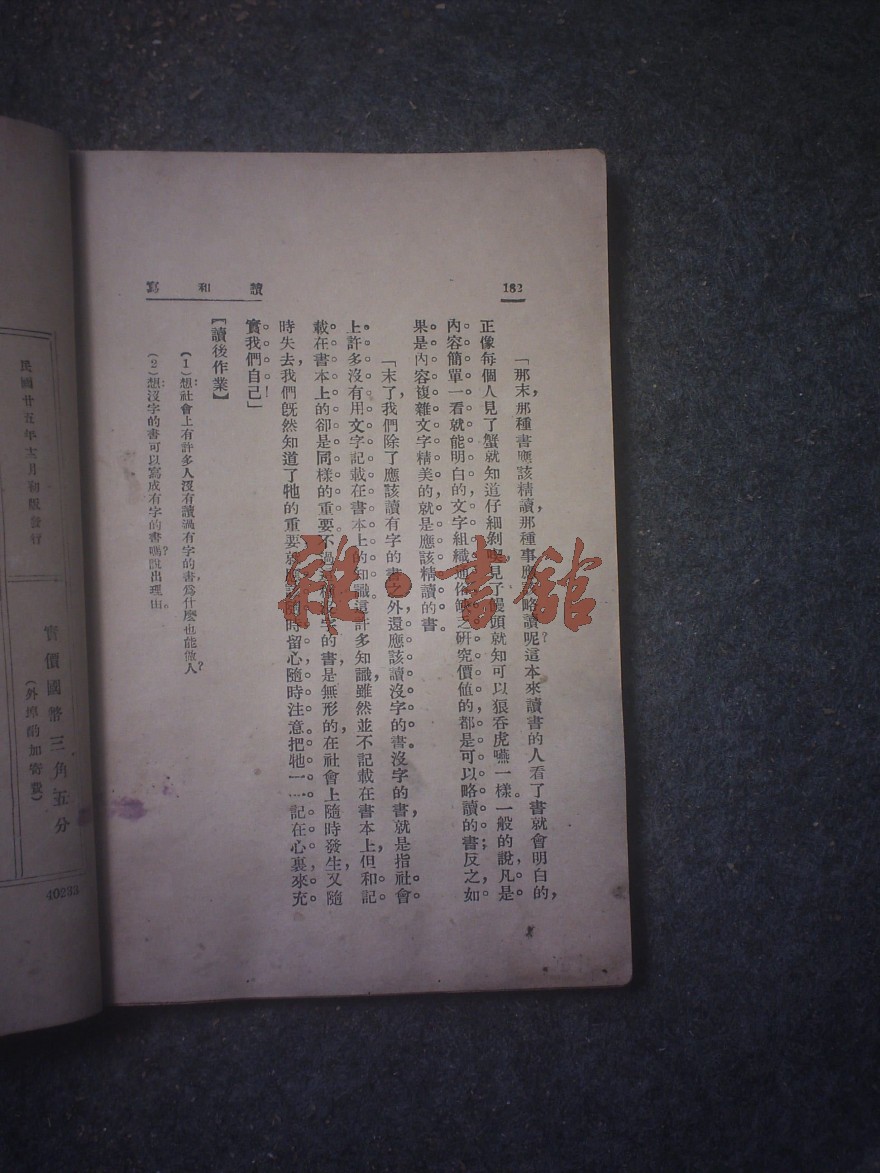 182
讀和寫
「那末,那種書應該精讀,那種事應該略讀呢?這本來讀書的人看了書就會明白的,
正像每個人見了蟹就知道仔細剝喫,見了饅頭就知可以狼吞虎嚥一樣。一般的說,凡是
內容簡單一看就能明白的,文字組織通俗缺乏研究價值的,都是可以略讀的書;反之,如
果是內容複雜文字精美的,就是應該精讀的書。
「末了,我們除了應該讀有字的書之外,還應該讀沒字的書。沒字的書,就是指社會
上許多沒有用文字記載在書本上的知識。這許多知識,雖然並不記載在書本上,但和記
載在書本上的卻是同樣的重要。不過
字的書是無形的,在社會上隨時發生,又隨
時失去,我們旣然知道了牠的重要,就應該隨時留心,隨時注意。把牠一…記在心裏,來充
實我們自己!」
【讀後作業】
(1)想社會上有許多人沒有讀過有字的書,爲什麼也能做人?
(2)想沒字的書可以寫成有字的書嗎?說出理由。
民國廿五年十月初版發行
實價國幣三角五分
(外埠酌加寄費)
40233
雜·書館